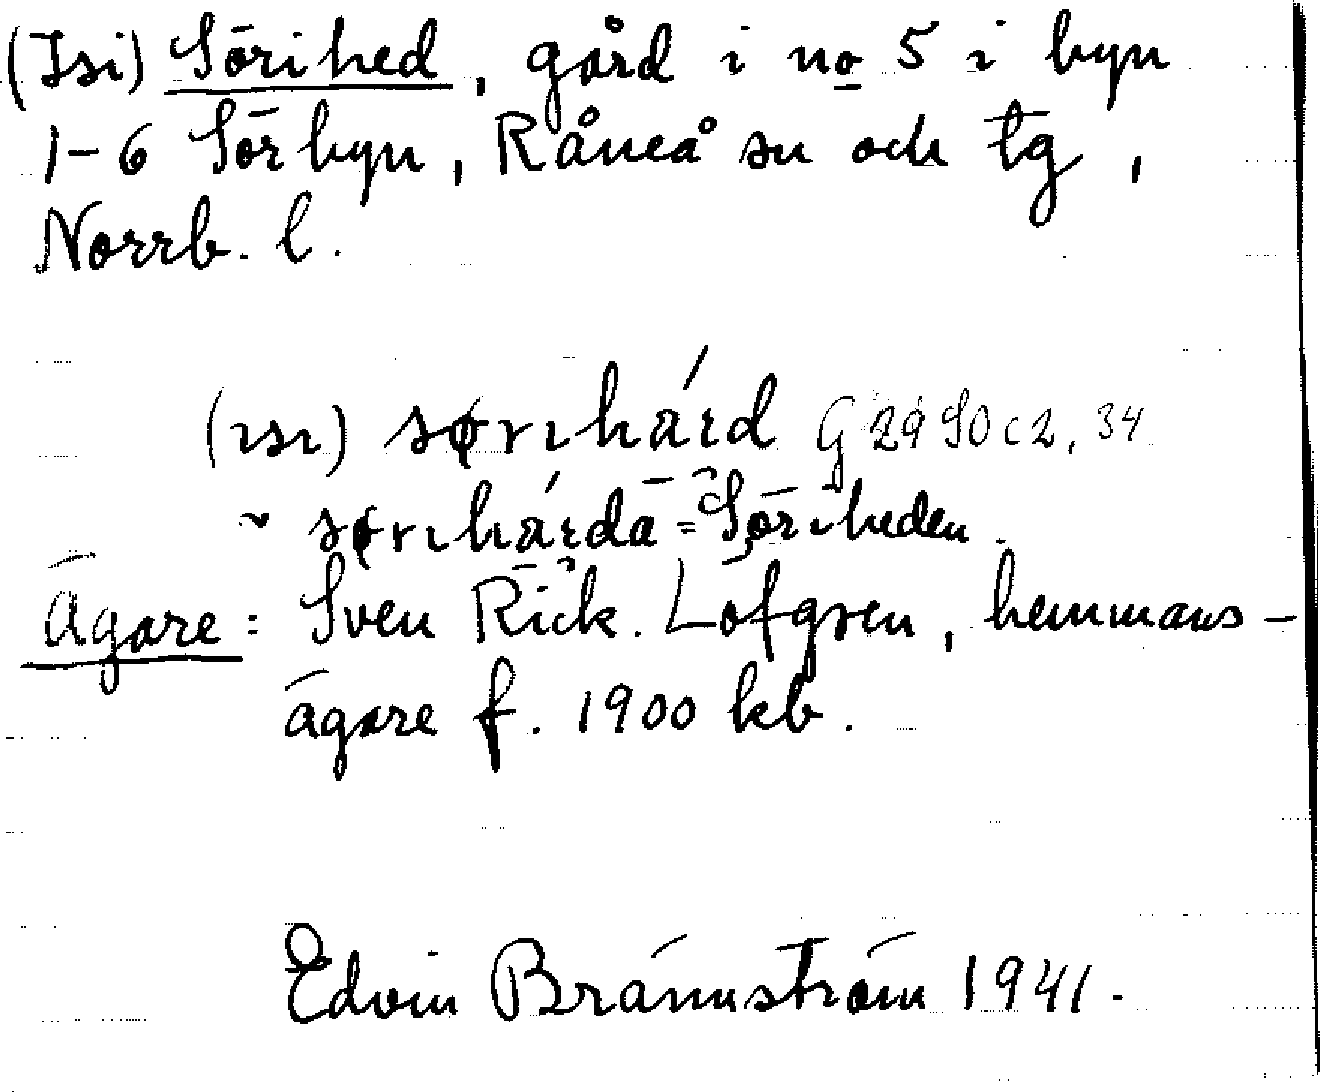 (Isi) Sörihed, gård i no 5 i byn
1-6 Sörbyn, Råneå sn och tg,
Norrb. l.
(ısı) sørıháıd G 29 SO c 2, 34
~ sørıháıda = Söriheden.
Ägare: Sven Rick. Löfgren, hemmans-
ägare f. 1900 kb.
Edvin Brännström 1941.